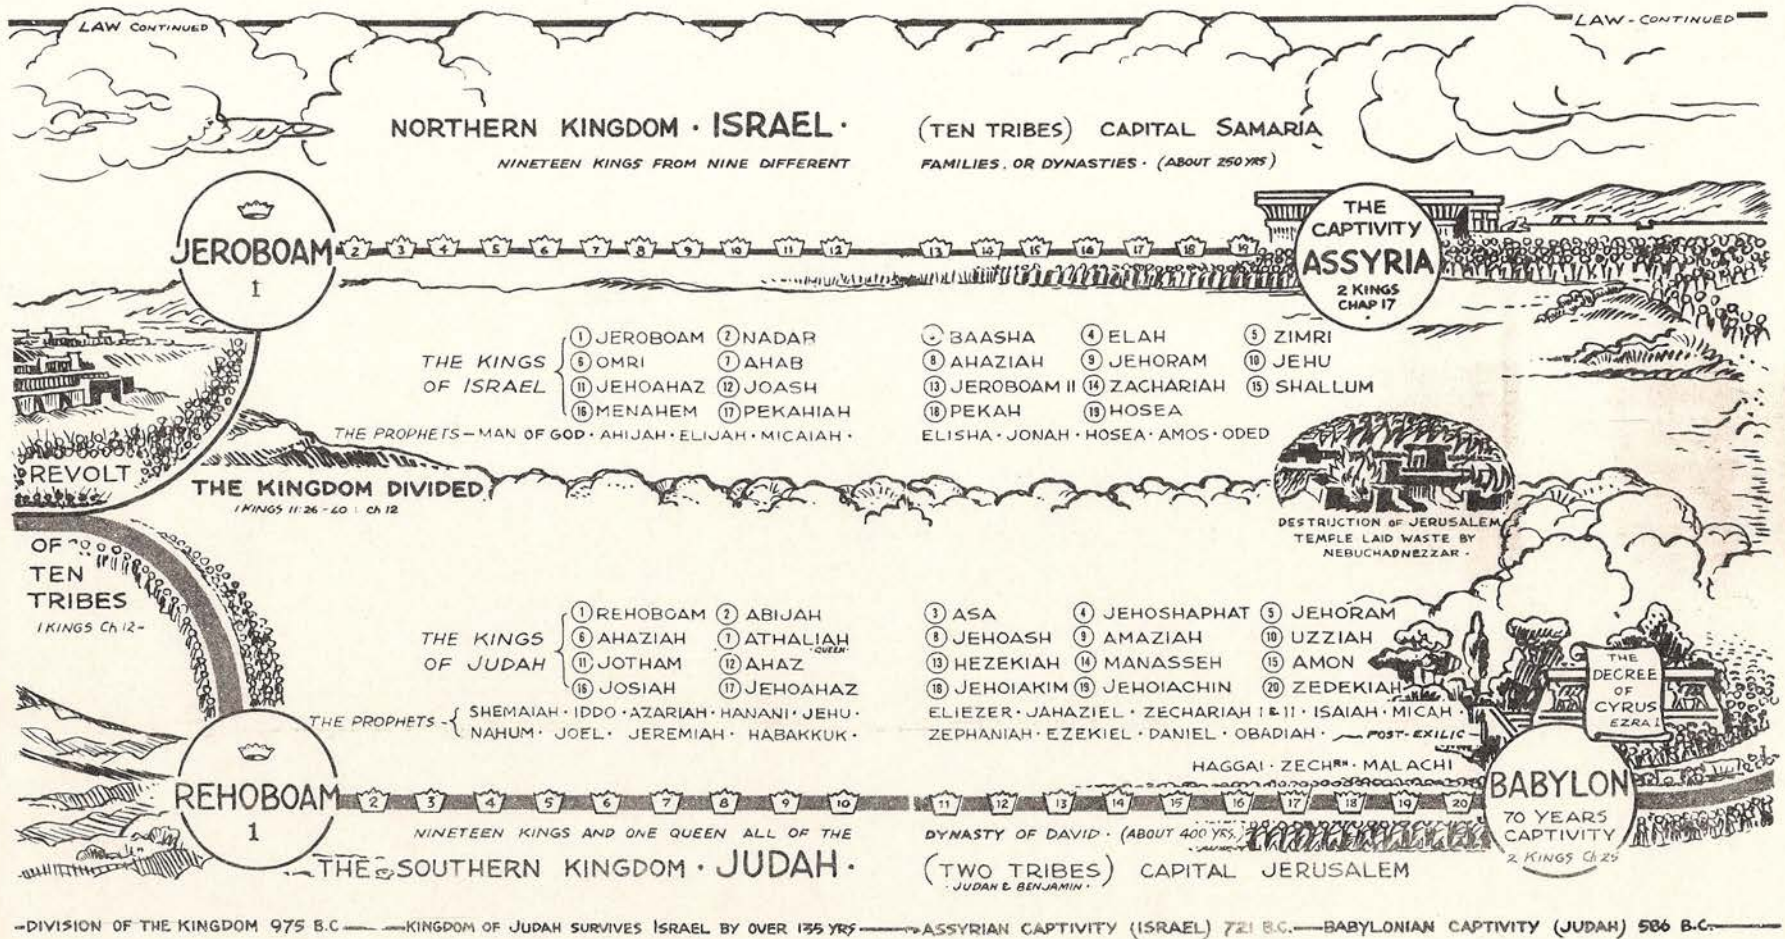 LAW CONTINUED
LAW-CONTINUED
NORTHERN KINGDOM · ISRAEL · (TEN TRIBES) CAPITAL SAMARIA
NINETEEN KINGS FROM NINE DIFFERENT FAMILIES, OR DYNASTIES · (ABOUT 250 YRS)
JEROBOAM
1
2 3 4 5 6 7 8 9 10 11 12 13 14 15 16 17 18 19
THE
CAPTIVITY
ASSYRIA
2 KINGS
CHAP 17
THE KINGS
OF ISRAEL
1 JEROBOAM 2 NADAB BAASHA 4 ELAH 5 ZIMRI
6 OMRI 7 AHAB 8 AHAZIAH 9 JEHORAM 10 JEHU
11 JEHOAHAZ 12 JOASH 13 JEROBOAM II 14 ZACHARIAH 15 SHALLUM
16 MENAHEM 17 PEKAHIAH 18 PEKAH 19 HOSEA
THE PROPHETS - MAN OF GOD · AHIJAH · ELIJAH · MICAIAH · ELISHA · JONAH · HOSEA · AMOS · ODED
REVOLT
OF
TEN
TRIBES
1 KINGS Ch 12-
THE KINGDOM DIVIDED
1 KINGS 11:26-40 : Ch 12
DESTRUCTION OF JERUSALEM
TEMPLE LAID WASTE BY
NEBUCHADNEZZAR ·
THE KINGS
OF JUDAH
1 REHOBOAM 2 ABIJAH 3 ASA 4 JEHOSHAPHAT 5 JEHORAM
6 AHAZIAH 7 ATHALIAH · QUEEN · 8 JEHOASH 9 AMAZIAH 10 UZZIAH
11 JOTHAM 12 AHAZ 13 HEZEKIAH 14 MANASSEH 15 AMON
16 JOSIAH 17 JEHOAHAZ 18 JEHOIAKIM 19 JEHOIACHIN 20 ZEDEKIAH
THE PROPHETS -
SHEMAIAH · IDDO · AZARIAH · HANANI · JEHU · ELIEZER · JAHAZIEL · ZECHARIAH I & II · ISAIAH · MICAH ·
NAHUM · JOEL · JEREMIAH · HABAKKUK · ZEPHANIAH · EZEKIEL · DANIEL · OBADIAH · POST-EXILIC -
HAGGAI · ZECHRH · MALACHI
THE
DECREE
OF
CYRUS
EZRA 1
REHOBOAM
1
2 3 4 5 6 7 8 9 10 11 12 13 14 15 16 17 18 19 20
BABYLON
70 YEARS
CAPTIVITY
2 KINGS Ch 25
NINETEEN KINGS AND ONE QUEEN ALL OF THE DYNASTY OF DAVID · (ABOUT 400 YRS.)
THE SOUTHERN KINGDOM · JUDAH · (TWO TRIBES) CAPITAL JERUSALEM
· JUDAH & BENJAMIN ·
-DIVISION OF THE KINGDOM 975 B.C. — KINGDOM OF JUDAH SURVIVES ISRAEL BY OVER 135 YRS — ASSYRIAN CAPTIVITY (ISRAEL) 721 B.C. — BABYLONIAN CAPTIVITY (JUDAH) 586 B.C.